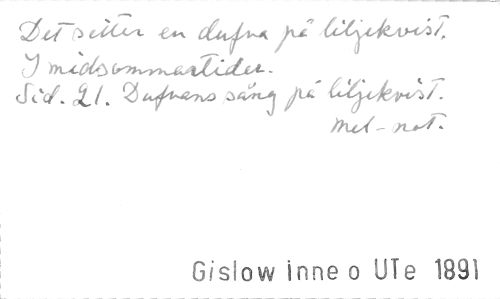 Det sitter en dufva på liljekvist.
I midsommartider.
Sid. 21. Dufvans sång på liljekvist.
Mel-not.
Gislow Inne o UTe 1891